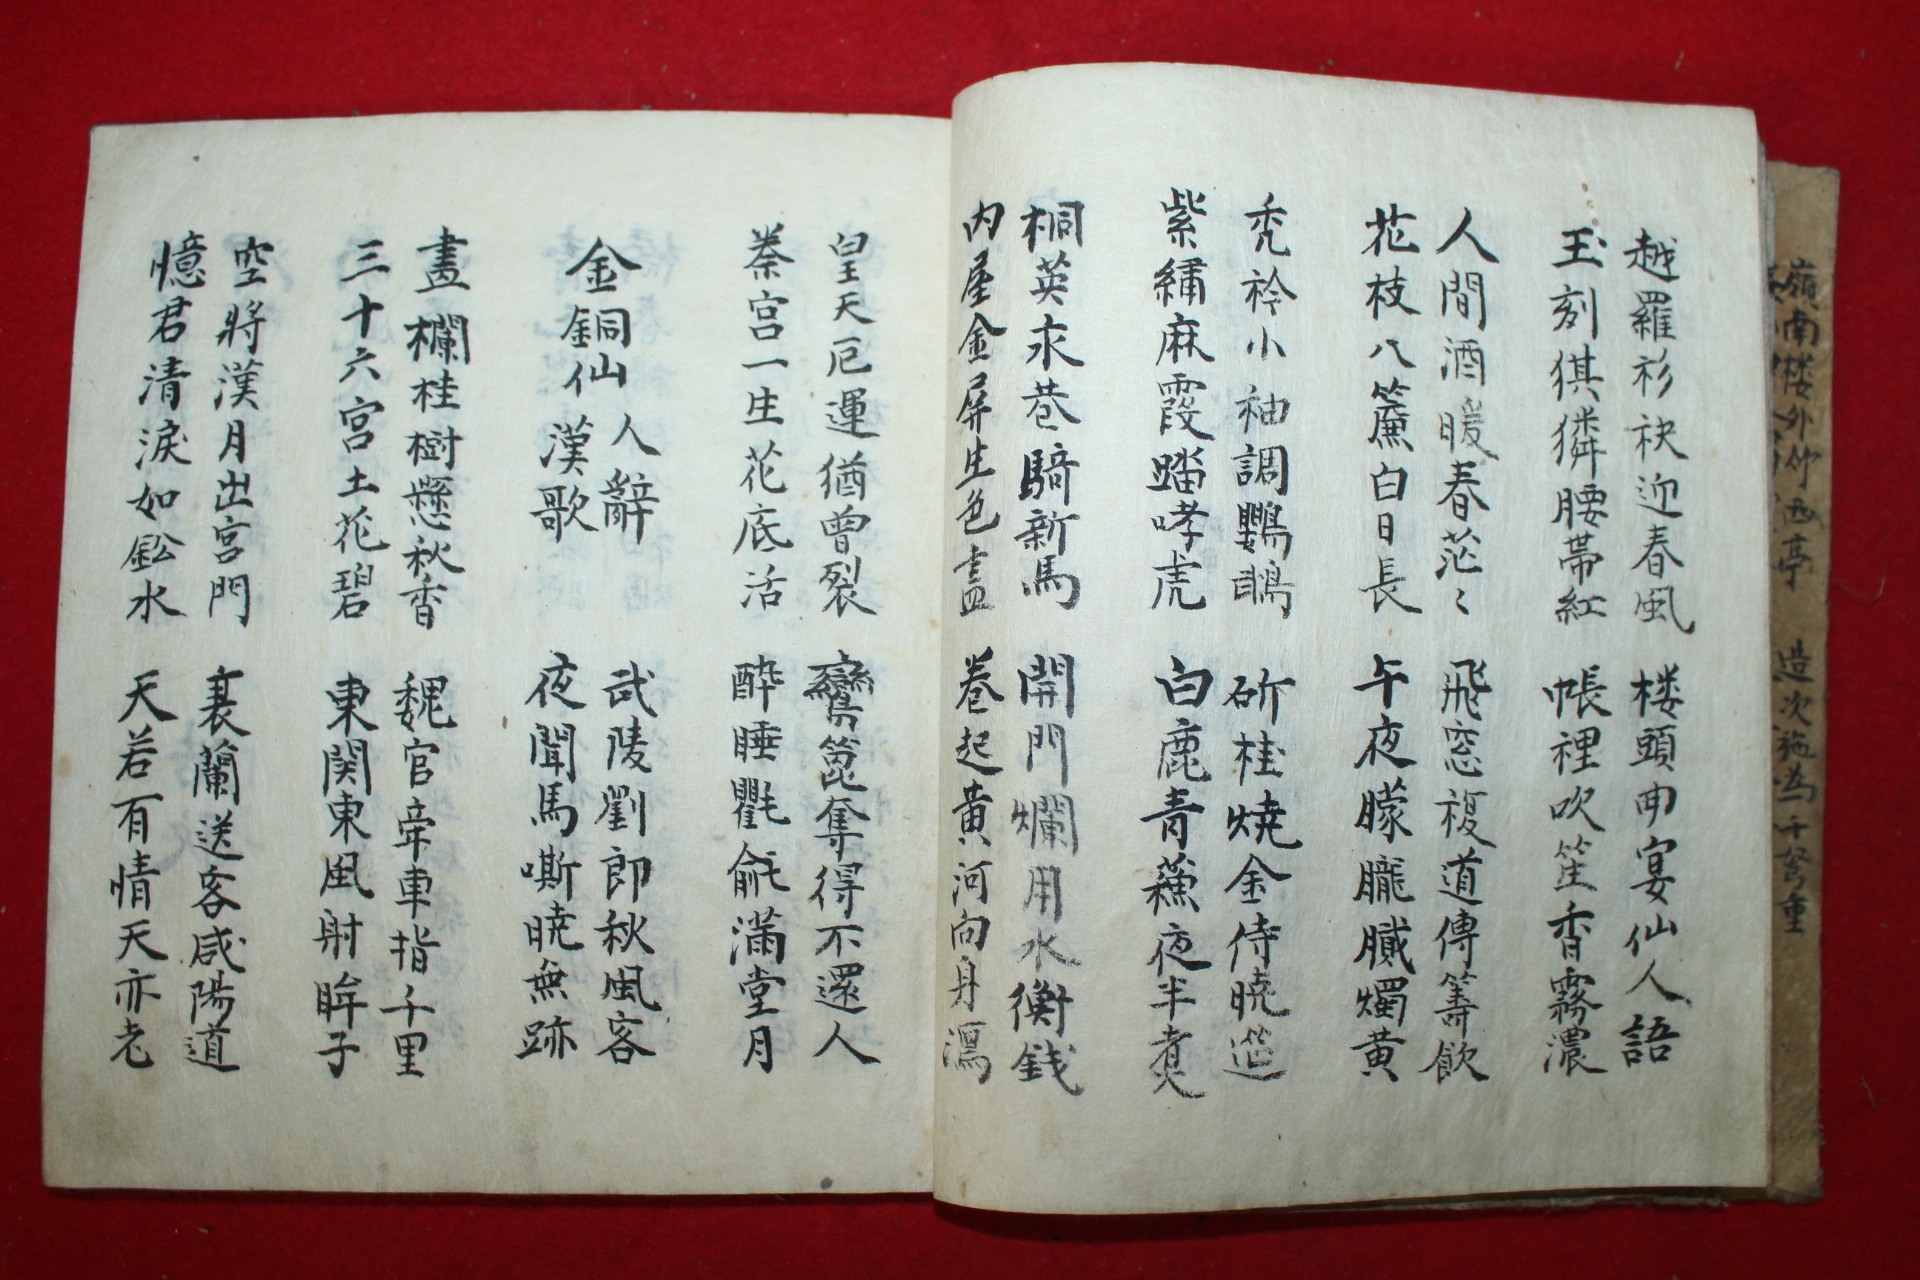 越羅衫袂迎春風 楼頭曲宴仙人語
玉刻猉獜腰帯紅 帳裡吹笙香霧濃
人間酒暖春茫〻 飛窓複道傳籌飲
花枝八簾白日長 午夜朦朧膱燭黄
禿衿小袖調鸚鵡 斫桂燒金待曉筵
紫繡麻霞踏哮虎 白鹿青蘓夜半煮
桐英永巷騎新馬 開門爛用水衡銭
内屋金屏生色畵 卷起黄河向身瀉
皇天厄運猶曽裂 鸞篦奪得不還人
秦宮一生花底活 酔睡氍毹滿堂月
金銅仙人辭漢歌 武陵劉郎秋風客
夜聞馬嘶曉無跡
畫欄桂樹懸秋香 魏官牽車指千里
三十六宮土花碧 東関東風射眸子
空將漢月出宮門 衰蘭送客咸陽道
憶君清淚如鈆水 天若有情天亦老
嶺南楼外竹西亭 造次施為千弩重